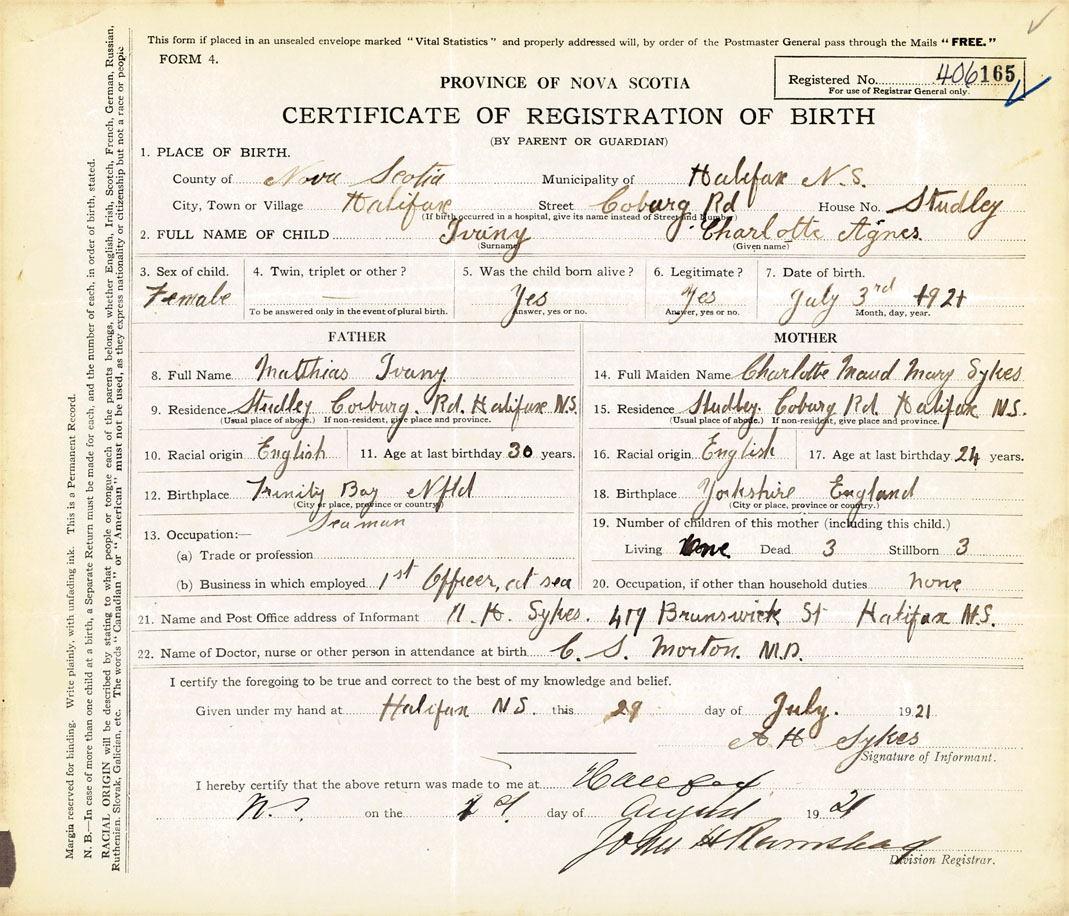 This form if placed in an unsealed envelope marked "Vital Statistics" and properly addressed will, by order of the Postmaster General pass through the Mails "FREE."
FORM 4.
Registered No. 406 165
For use of Registrar General only.
PROVINCE OF NOVA SCOTIA
CERTIFICATE OF REGISTRATION OF BIRTH
(BY PARENT OR GUARDIAN)
1. PLACE OF BIRTH.
County of Nova Scotia Municipality of Halifax N.S.
City, Town or Village Halifax Street Coburg Rd House No. Studley
(If birth occurred in a hospital, give its name instead of Street and Number)
2. FULL NAME OF CHILD Ivany Charlotte Agnes
(Surname) (Given name)
3. Sex of child. 4. Twin, triplet or other? 5. Was the child born alive? 6. Legitimate? 7. Date of birth.
Female — Yes Yes July 3rd 1921
To be answered only in the event of plural birth. Answer, yes or no. Answer, yes or no. Month, day, year.
FATHER MOTHER
8. Full Name Matthias Ivany 14. Full Maiden Name Charlotte Maud Mary Sykes
9. Residence Studley Coburg. Rd. Halifax N.S. 15. Residence Studley. Coburg Rd. Halifax N.S.
(Usual place of abode.) If non-resident, give place and province. (Usual place of abode.) If non-resident, give place and province.
10. Racial origin English 11. Age at last birthday 30 years. 16. Racial origin English 17. Age at last birthday 24 years.
12. Birthplace Trinity Bay Nfld 18. Birthplace Yorkshire England
(City or place, province or country.) (City or place, province or country.)
Seaman 19. Number of children of this mother (including this child.)
13. Occupation:—
(a) Trade or profession Living Dead 3 Stillborn 3
(b) Business in which employed 1st Officer, at sea 20. Occupation, if other than household duties none
21. Name and Post Office address of Informant H. Sykes. Brunswick St Halifax N.S.
22. Name of Doctor, nurse or other person in attendance at birth C. S. Morton. M.D.
I certify the foregoing to be true and correct to the best of my knowledge and belief.
Given under my hand at Halifax N.S. this 29 day of July. 1921
A H Sykes
Signature of Informant.
I hereby certify that the above return was made to me at Halifax
N.S. on the day of August 1921
John H
Division Registrar.
Margin reserved for binding. Write plainly, with unfading ink. This is a Permanent Record.
N. B.—In case of more than one child at a birth, a Separate Return must be made for each, and the number of each, in order of birth, stated.
RACIAL ORIGIN will be described by stating to what people or tongue each of the parents belongs, whether English, Irish, Scotch, French, German, Russian,
Ruthenian, Slovak, Galician, etc. The words "Canadian" or "American" must not be used, as they express nationality or citizenship but not a race or people